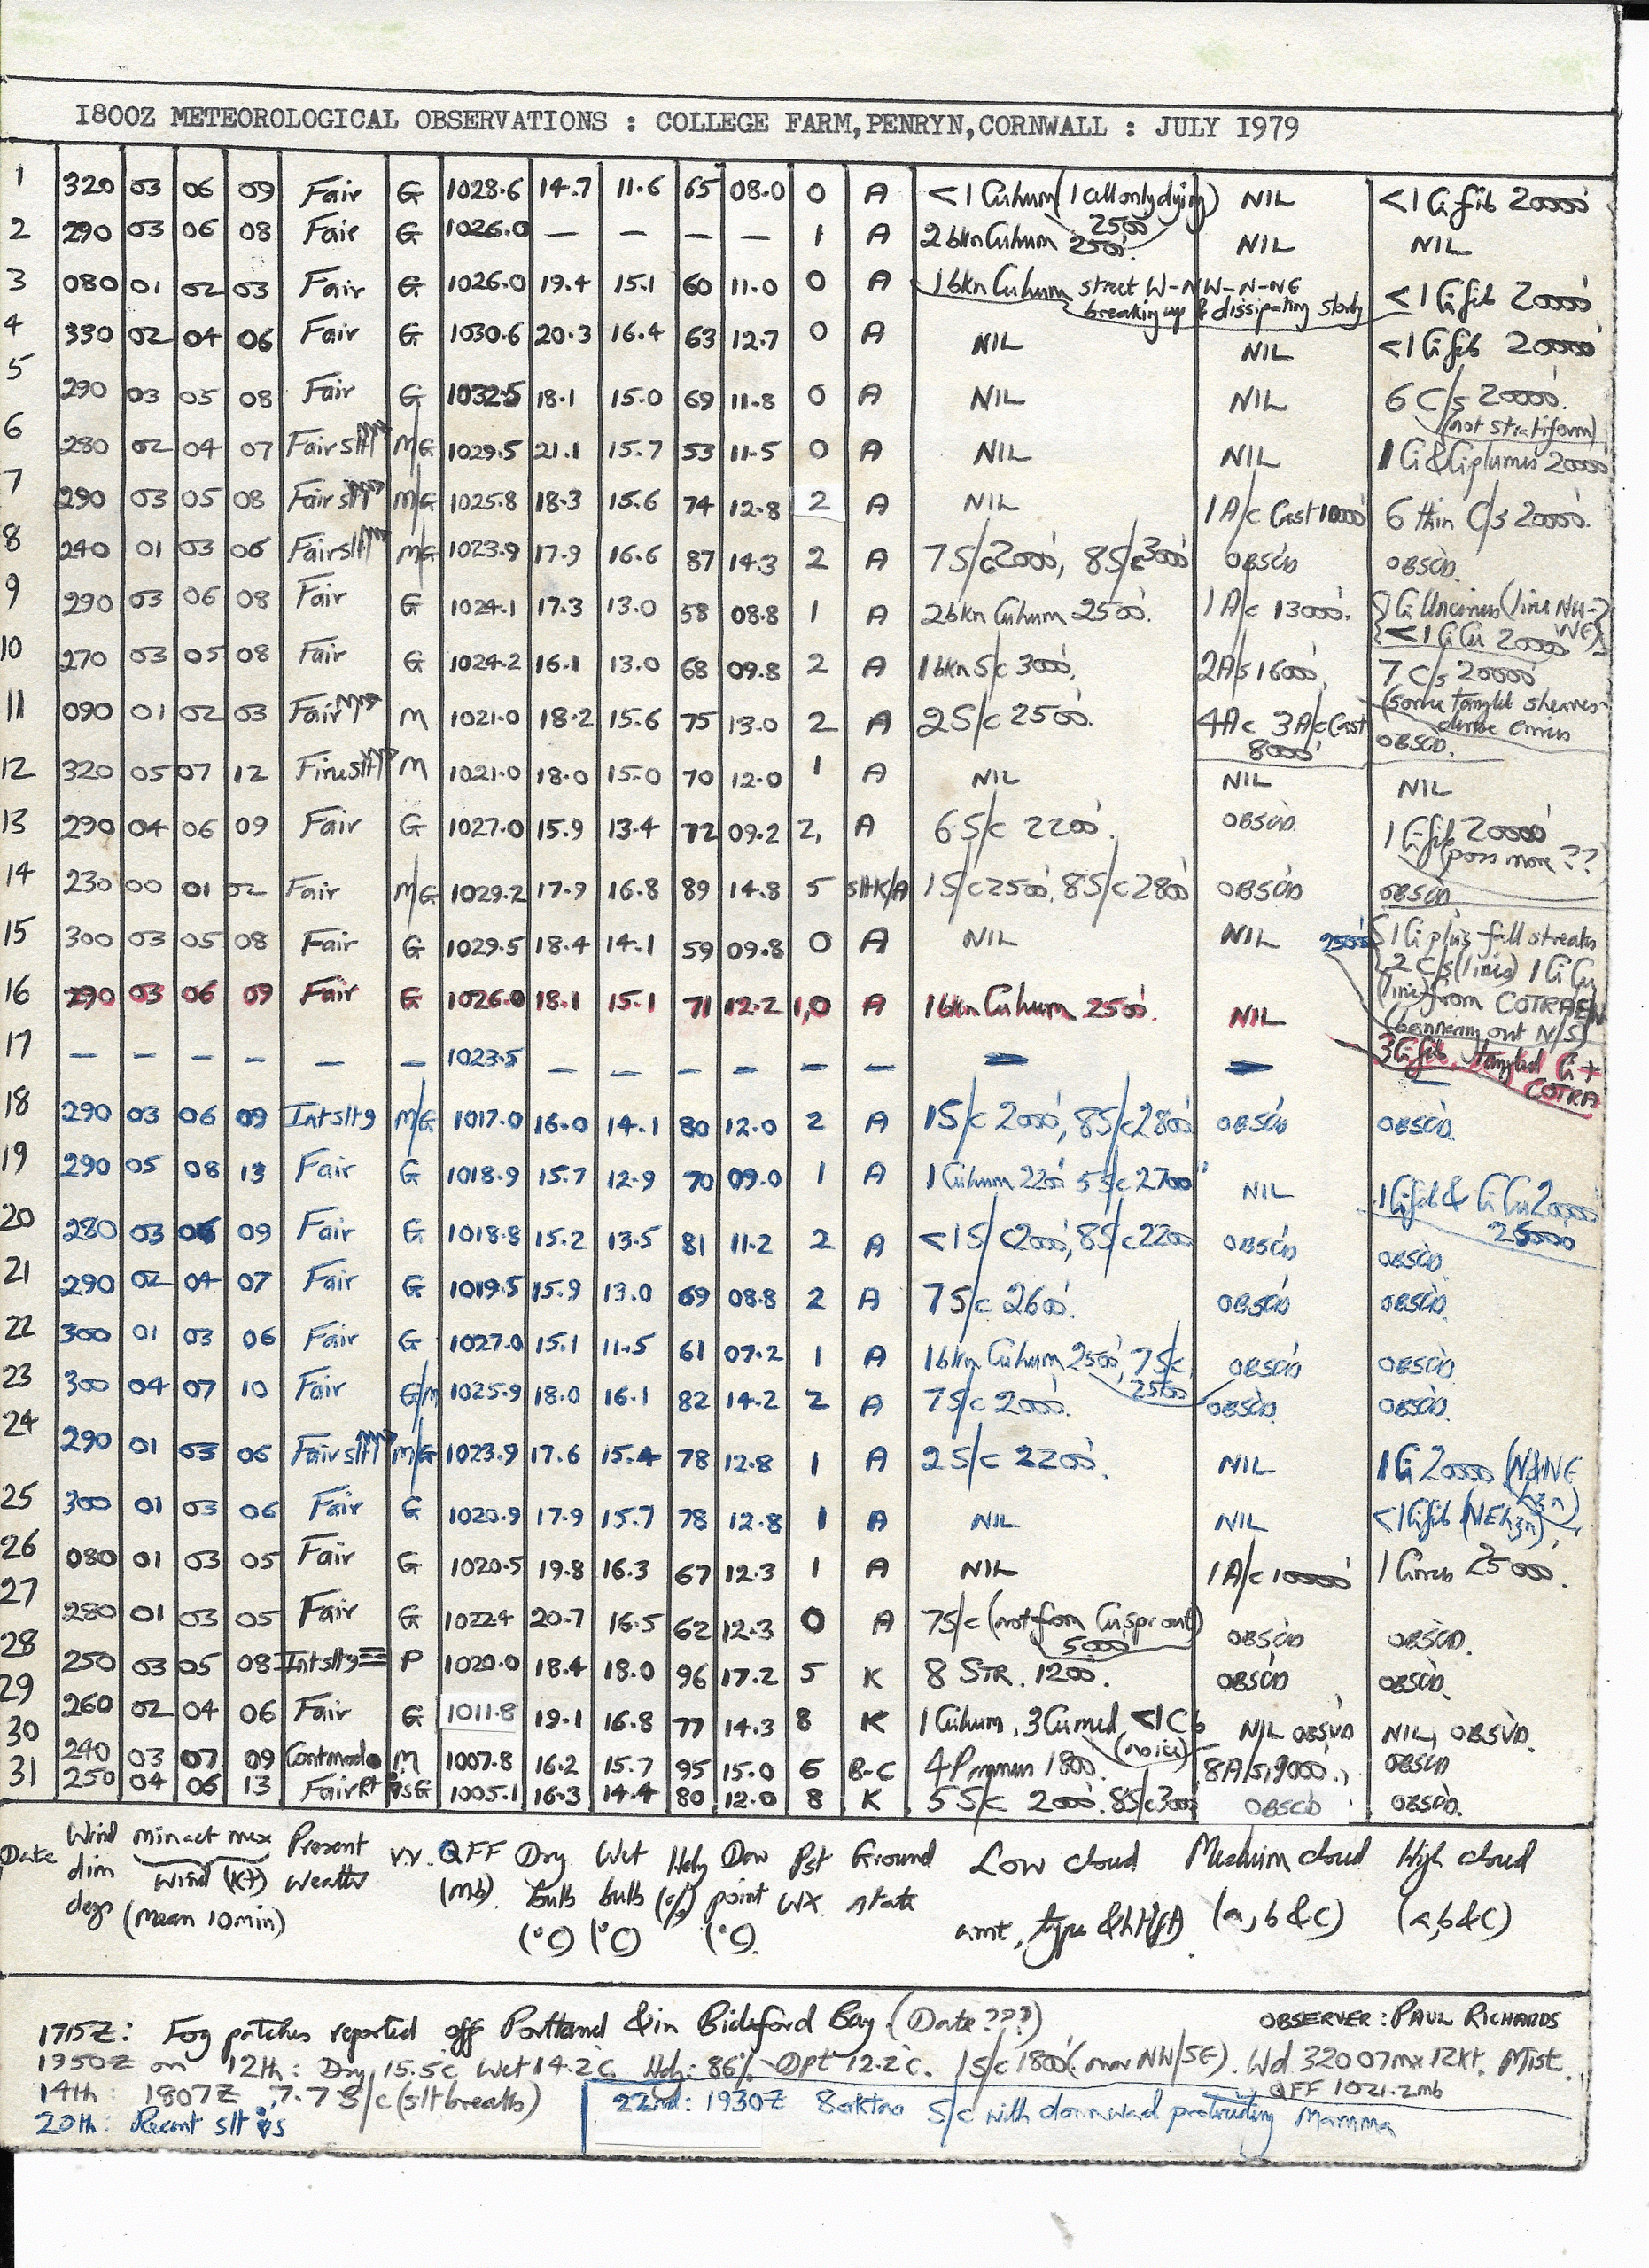 1800Z METEOROLOGICAL OBSERVATIONS : COLLEGE FARM,PENRYN,CORNWALL : JULY 1979
1 320 03 06 09 Fair G 1028.6 14.7 11.6 65 08.0 0 A <1 Cuhum (1 cell only dying) 2500' NIL <1 Ci fib 20000'
2 290 03 06 08 Fair G 1026.0 — — — — 1 A 2 bkn Cuhum 2500'. NIL NIL
3 080 01 02 03 Fair G 1026.0 19.4 15.1 60 11.0 0 A 1 bkn Cuhum street W-NW-N-NE breaking up & dissipating slowly <1 Ci fib 20000'
4 330 02 04 06 Fair G 1030.6 20.3 16.4 63 12.7 0 A NIL NIL <1 Ci fib 20000'
5 290 03 05 08 Fair G 1032.5 18.1 15.0 69 11.8 0 A NIL NIL 6 C/s 20000'. (not stratiform)
6 280 02 04 07 Fair slt M/G 1029.5 21.1 15.7 53 11.5 0 A NIL NIL 1 Ci & Ci plumes 20000'
7 290 03 05 08 Fair slt M/G 1025.8 18.3 15.6 74 12.8 2 A NIL 1 A/c Cast 10000' 6 thin C/s 20000'.
8 240 01 03 06 Fair slt M/G 1023.9 17.9 16.6 87 14.3 2 A 7 S/c 2000', 8 S/c 3000' OBSCD OBSCD.
9 290 03 06 08 Fair G 1024.1 17.3 13.0 58 08.8 1 A 2 bkn Cuhum 2500'. 1 A/c 13000'. Ci Uncinus (line NW-NE) <1 Ci Cu 20000'
10 270 03 05 08 Fair G 1024.2 16.1 13.0 68 09.8 2 A 1 bkn S/c 3000'. 2 A/s 16000'. 7 C/s 20000' (some tangled sheaves- dense cirrus
11 090 01 02 03 Fair M 1021.0 18.2 15.6 75 13.0 2 A 2 S/c 2500'. 4 Ac 3 A/c Cast 8000' OBSCD.
12 320 05 07 12 Fine slt M 1021.0 18.0 15.0 70 12.0 1 A NIL NIL NIL
13 290 04 06 09 Fair G 1027.0 15.9 13.4 72 09.2 2, A 6 S/c 2200'. OBSCD. 1 Ci fib 20000' (poss more ??)
14 230 00 01 02 Fair M/G 1029.2 17.9 16.8 89 14.8 5 slt K/A 1 S/c 2500'. 8 S/c 2800' OBSCD OBSCD
15 300 03 05 08 Fair G 1029.5 18.4 14.1 59 09.8 0 A NIL NIL 2500' 1 Ci plus fall streaks 2 C/s (lines) 1 Ci Cu (line) from COTRAIL (bannering out N/S)
16 290 03 06 09 Fair G 1026.0 18.1 15.1 71 12.2 1,0 A 1 bkn Cuhum 2500'. NIL 3 Ci fib, tangled Ci + COTRA
17 — — — — — — 1023.5 — — — — — — — — —
18 290 03 06 09 Int slt 9 M/G 1017.0 16.0 14.1 80 12.0 2 A 1 S/c 2000', 8 S/c 2800' OBSCD OBSCD.
19 290 05 08 13 Fair G 1018.9 15.7 12.9 70 09.0 1 A 1 Cuhum 2200' 5 S/c 2700' NIL 1 Ci fib & Ci Cu 20000' 25000
20 280 03 06 09 Fair G 1018.8 15.2 13.5 81 11.2 2 A <1 S/c 2000', 8 S/c 2200 OBSCD OBSCD.
21 290 02 04 07 Fair G 1019.5 15.9 13.0 69 08.8 2 A 7 S/c 2600'. OBSCD OBSCD.
22 300 01 03 06 Fair G 1027.0 15.1 11.5 61 07.2 1 A 1 bkn Cuhum 2500', 7 S/c, 2500 OBSCD OBSCD.
23 300 04 07 10 Fair G/M 1025.9 18.0 16.1 82 14.2 2 A 7 S/c 2000'. OBSCD. OBSCD.
24 290 01 03 06 Fair slt M/G 1023.9 17.6 15.4 78 12.8 1 A 2 S/c 2200'. NIL 1 Ci 20000 (N&NE hzn)
25 300 01 03 06 Fair G 1020.9 17.9 15.7 78 12.8 1 A NIL NIL <1 Ci fib (NE hzn)
26 080 01 03 05 Fair G 1020.5 19.8 16.3 67 12.3 1 A NIL 1 A/c 10000' 1 Cirrus 25000'.
27 280 01 03 05 Fair G 1022.4 20.7 16.5 62 12.3 0 A 7 S/c (not from Cu spr out) 5000 OBSCD OBSCD.
28 250 03 05 08 Int slt 9 P 1020.0 18.4 18.0 96 17.2 5 K 8 STR. 1200'. OBSCD OBSCD.
29 260 02 04 06 Fair G 1011.8 19.1 16.8 77 14.3 8 K 1 Cuhum, 3 Cu med, <1 Cb (no ice) NIL OBSVD NIL, OBSVD.
30 240 03 07 09 Cont mod M 1007.8 16.2 15.7 95 15.0 6 B-C 4 Pannus 1800'. 8 A/s, 9000'., OBSCD
31 250 04 06 13 Fair Rt G 1005.1 16.3 14.4 80 12.0 8 K 5 S/c 2000'. 8 S/c 3000 OBSCD OBSCD.
Date Wind dirn degs min act max Wind (kt) (mean 10min) Present Weather V.V. QFF (mb). Dry bulb (°C) Wet bulb (°C) Hdy (%) Dew point (°C). Pst WX Ground state Low cloud amt, type & ht (ft). Medium cloud (a,b&c) High cloud (a,b&c)
1715Z: Fog patches reported off Portland & in Bideford Bay. (Date ???) OBSERVER : PAUL RICHARDS
1950Z on 12th: Dry 15.5°c Wet 14.2°c. Hdy: 86% Dpt 12.2°c. 1 S/c 1800' (mov NW/SE). Wd 320 07 mx 12kt. Mist.
QFF 1021.2mb
14th: 1807Z, 7.7 S/c (slt breaks)
22nd: 1930Z 8 oktas S/c with downward protruding Mamma
20th: Recent slt